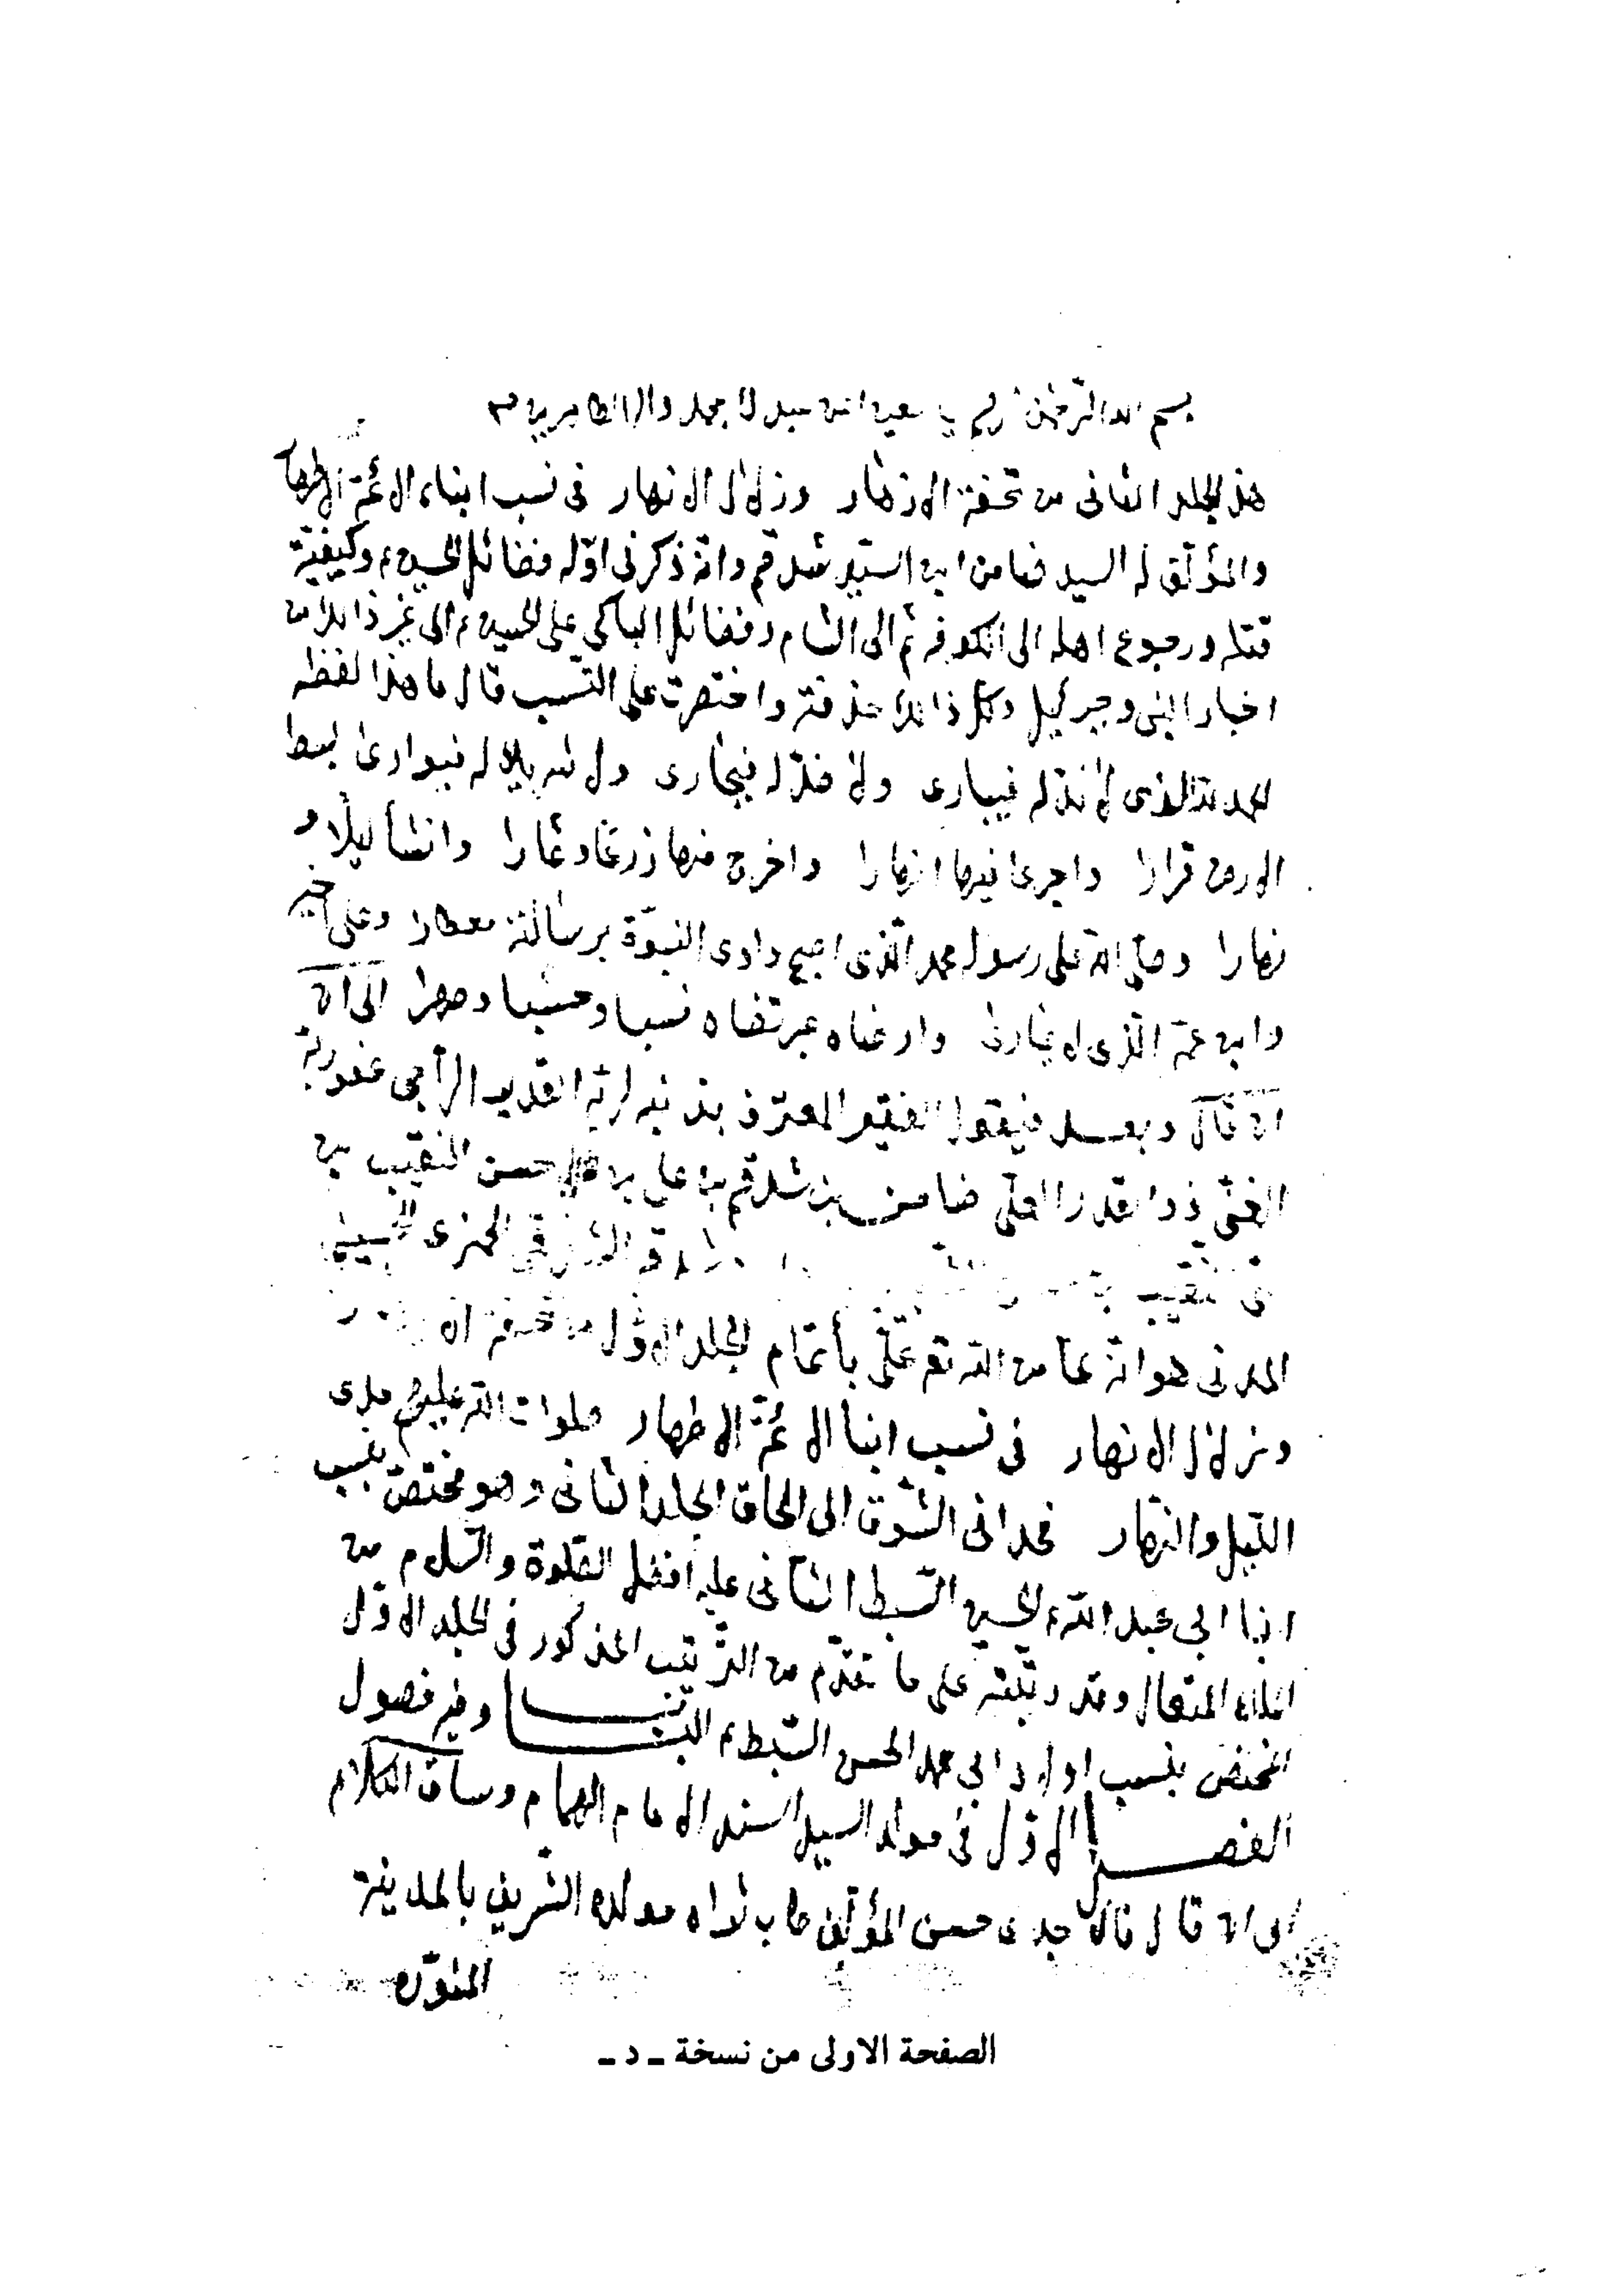 بسم الله الرحمن سيدنا محمد واله الطاهرين
هذ المجلد الثانى من تحفة الازهار وزلال الانهار فى نسب ابناء الائمة الاطهار
والمؤلف له السيد ضامن ابن السيد شدقم وانه ذكر فى اوله فضائل الحسين ع وكيفية
قتله ورجوع اهله الى الكوفه ثم الى الشام وفضائل الباكي على الحسين ع الى غير ذالك من
اخبار النبى وجبرئيل وكل ذالك حذفته واختصرت على النسب قال ما هذا لفظه
الحمد لله الذى لا ند له فيبارى ولا ضد له فيجارى ولا شريك له فيوارى بسط
الارض قرارا واجرى فيها انهارا واخرج منها زرعا وثمارا وانشأ ليلا و
نهارا وصلى الله على رسوله محمد الذى اصبح وادى النبوة برسالته معطارا وعلى اخيه
وابن عمه الذى لا يجارى وارضاه نسبا وحسبا وصهرا الى ان
قال وبعد فيقول الفقير المعترف بذنبه لربه القدير الراجى عفو ربه
الغنى ضامن بن شدقم بن على بن حسن النقيب بن
النقيب الحمزى الحسينى
المدنى هو انه لما من الله تع علىّ بأتمام المجلد الاول من تحفة
وزلال الانهار فى نسب ابنا الائمة الاطهار صلوات الله عليهم مدى
الليل والنهار فحدانى الشوق الى الحاق المجلد الثانى وهو مختص بنسب
ابنا ابى عبد الله الحسين السبط الثانى عليه افضل الصلوة والسلام من
الملك المتعال وقد رتبته على ما تقدم من الترتيب المذكور فى المجلد الاول
المختص بنسب اولاد ابى محمد الحسن السبط ع البنا وفيه فصول
الفصل الاول فى مولد السيد السند الامام الهمام وساق الكلام
الى ان قال قال جدى حسن المؤلف طاب ثراه مولده الشريف بالمدينة
المنوره
الصفحة الاولى من نسخة ـ د ـ